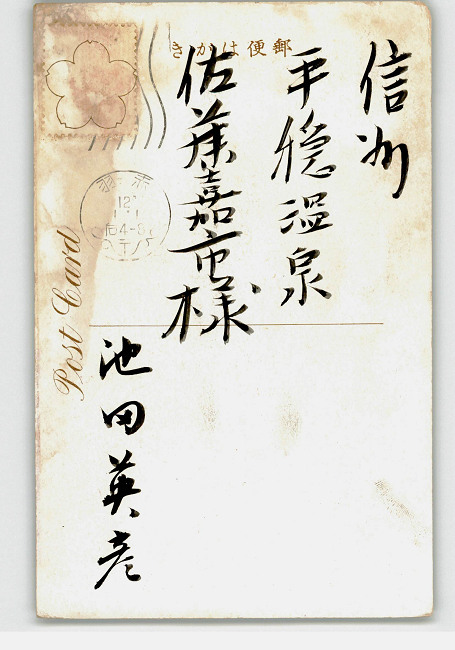 きかはは便郵
信州
平穏温泉
佐藤嘉市様
池田英彦
Post Card